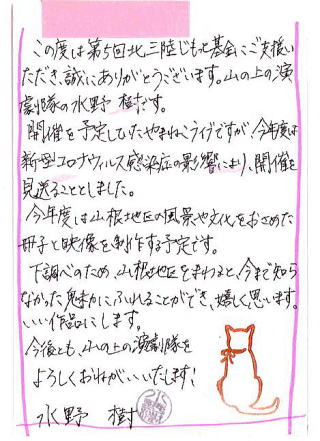 この度は第5回北三陸じもと基金にご支援い
ただき、誠にありがとうございます。山の上の演
劇隊の水野 樹です。
開催を予定していたやまねこライブですが、今年度は
新型コロナウィルス感染症の影響により、開催を
見送ることとしました。
今年度は山根地区の風景や文化をおさめた
冊子と映像を制作する予定です。
下調べのため、山根地区をまわると、今まで知ら
なかった魅力にふれることができ、嬉しく思います。
いい作品にします。
今後とも、山の上の演劇隊を
よろしくおねがいいたします!
水野 樹